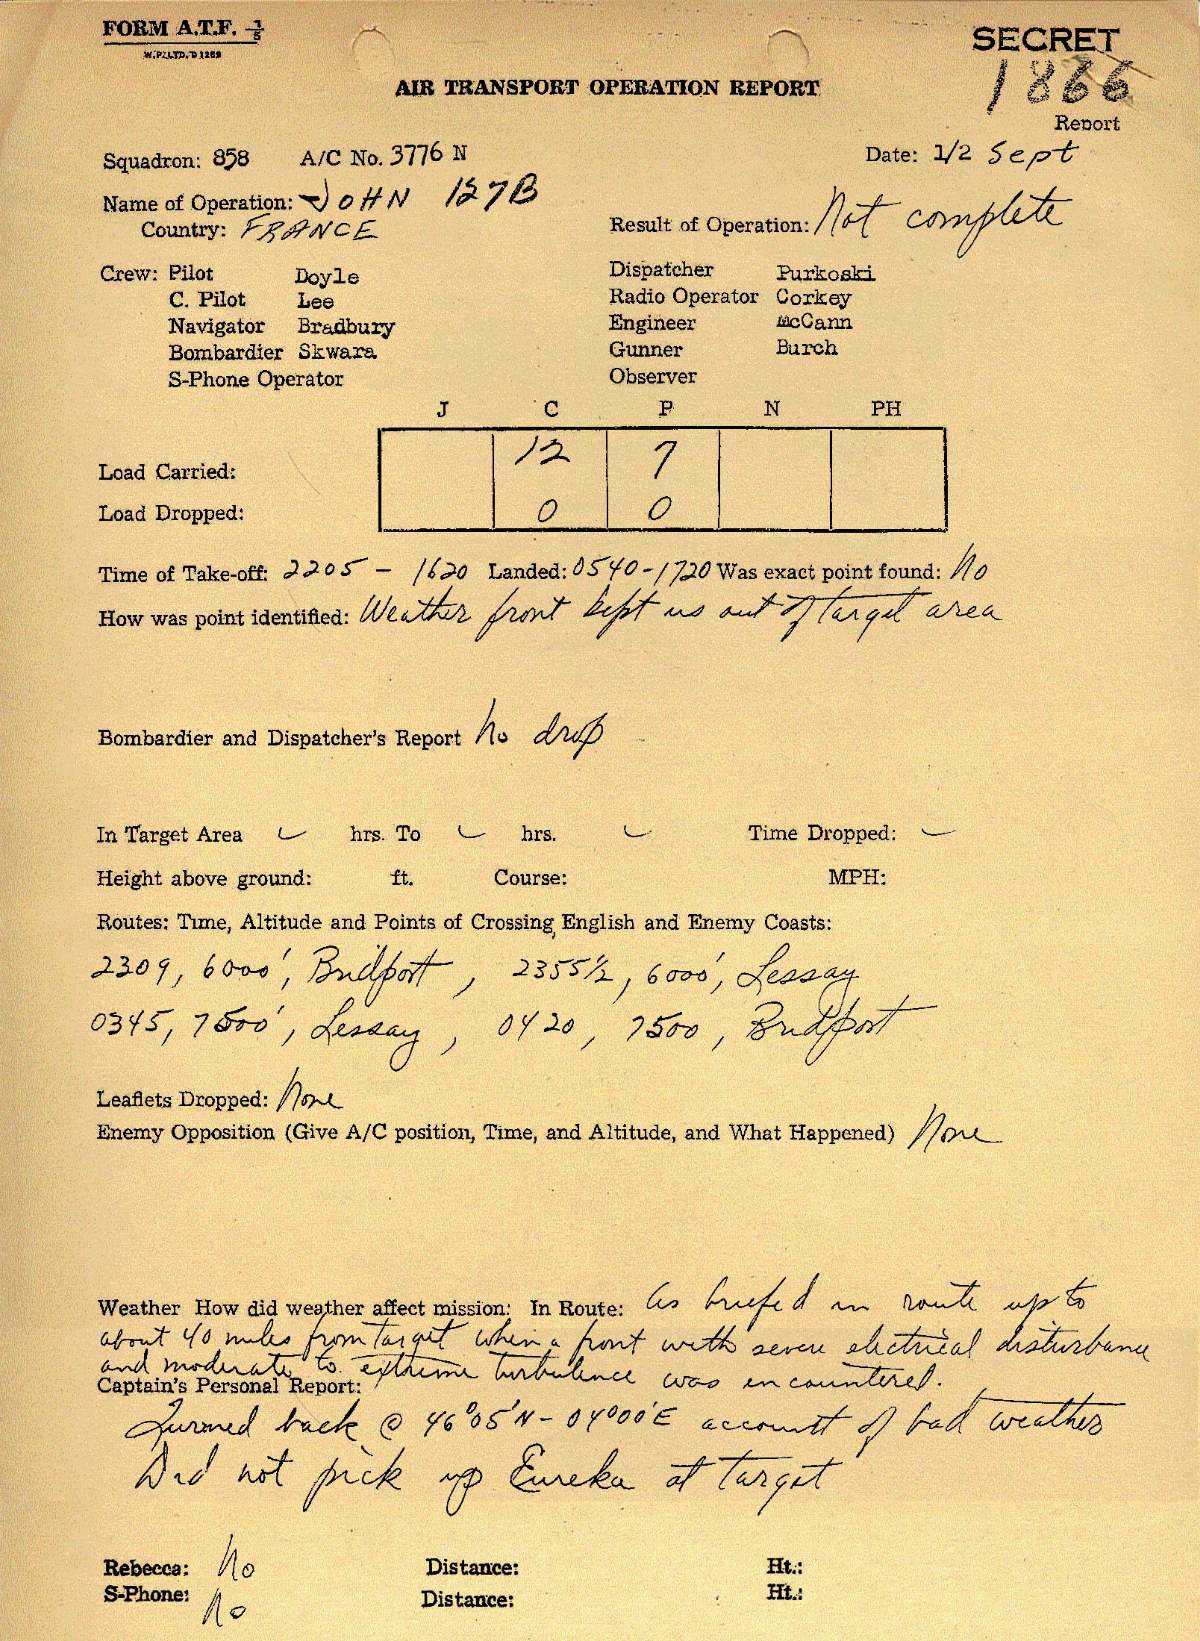 FORM A.T.F. 1/5
W.P. LTD. D 1259
SECRET
1866
AIR TRANSPORT OPERATION REPORT
Report
Squadron: 858 A/C No. 3776 N Date: 1/2 Sept
Name of Operation: JOHN 127B
Country: FRANCE Result of Operation: Not complete
Crew: Pilot Doyle Dispatcher Purkoski
C. Pilot Lee Radio Operator Corkey
Navigator Bradbury Engineer McCann
Bombardier Skwara Gunner Burch
S-Phone Operator Observer
J C P N PH
Load Carried: 12 7
Load Dropped: 0 0
Time of Take-off: 2205 - 1620 Landed: 0540-1720 Was exact point found: No
How was point identified: Weather front kept us out of target area
Bombardier and Dispatcher's Report No drop
In Target Area hrs. To hrs. Time Dropped:
Height above ground: ft. Course: MPH:
Routes: Time, Altitude and Points of Crossing English and Enemy Coasts:
2309, 6000', Bridport, 2355 1/2, 6000', Lessay
0345, 7500', Lessay, 0420, 7500, Bridport
Leaflets Dropped: None
Enemy Opposition (Give A/C position, Time, and Altitude, and What Happened) None
Weather How did weather affect mission: In Route: As briefed in route up to
about 40 miles from target when a front with severe electrical disturbance
and moderate to extreme turbulence was encountered.
Captain's Personal Report:
Turned back @ 46°05'N - 04°00'E account of bad weather
Did not pick up Eureka at target
Rebecca: No Distance: Ht.:
S-Phone: No Distance: Ht.: